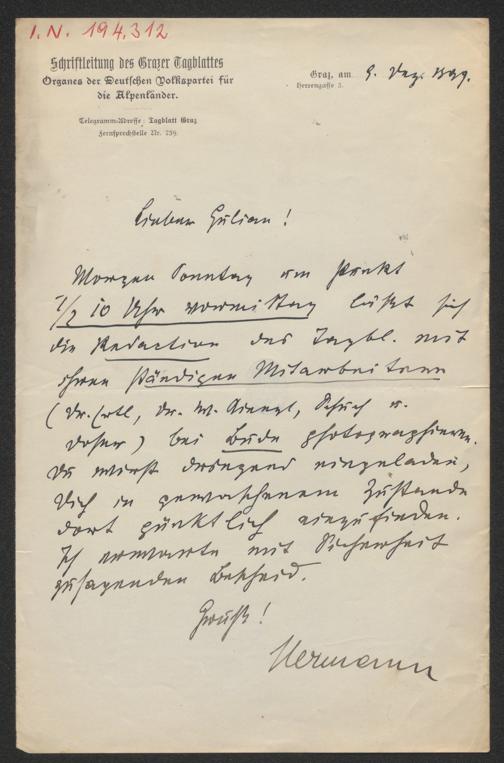 I.N. 194.312
Schriftleitung des Grazer Tagblattes
Organes der Deutschen Volkspartei für
die Alpenländer.
Telegramm-Adresse: Tagblatt Graz
Fernsprechstelle Nr. 259.
Graz, am 9. Dez. 1899.
Herrengasse 3.
Lieber Julian!
Morgen Sonntag um Punkt
1/2 10 Uhr vormittag läßt sich
die Redaction des Tagbl. mit
ihren ständigen Mitarbeitern
(Dr. Ertl, Dr. W. Kienzl, Schuch u.
) bei Bude photographieren.
Du wirst dringend eingeladen,
Dich in gewaschenem Zustande
dort pünktlich einzufinden.
Ich erwarte mit Sicherheit
zusagenden Bescheid.
Gruß!
Hermann